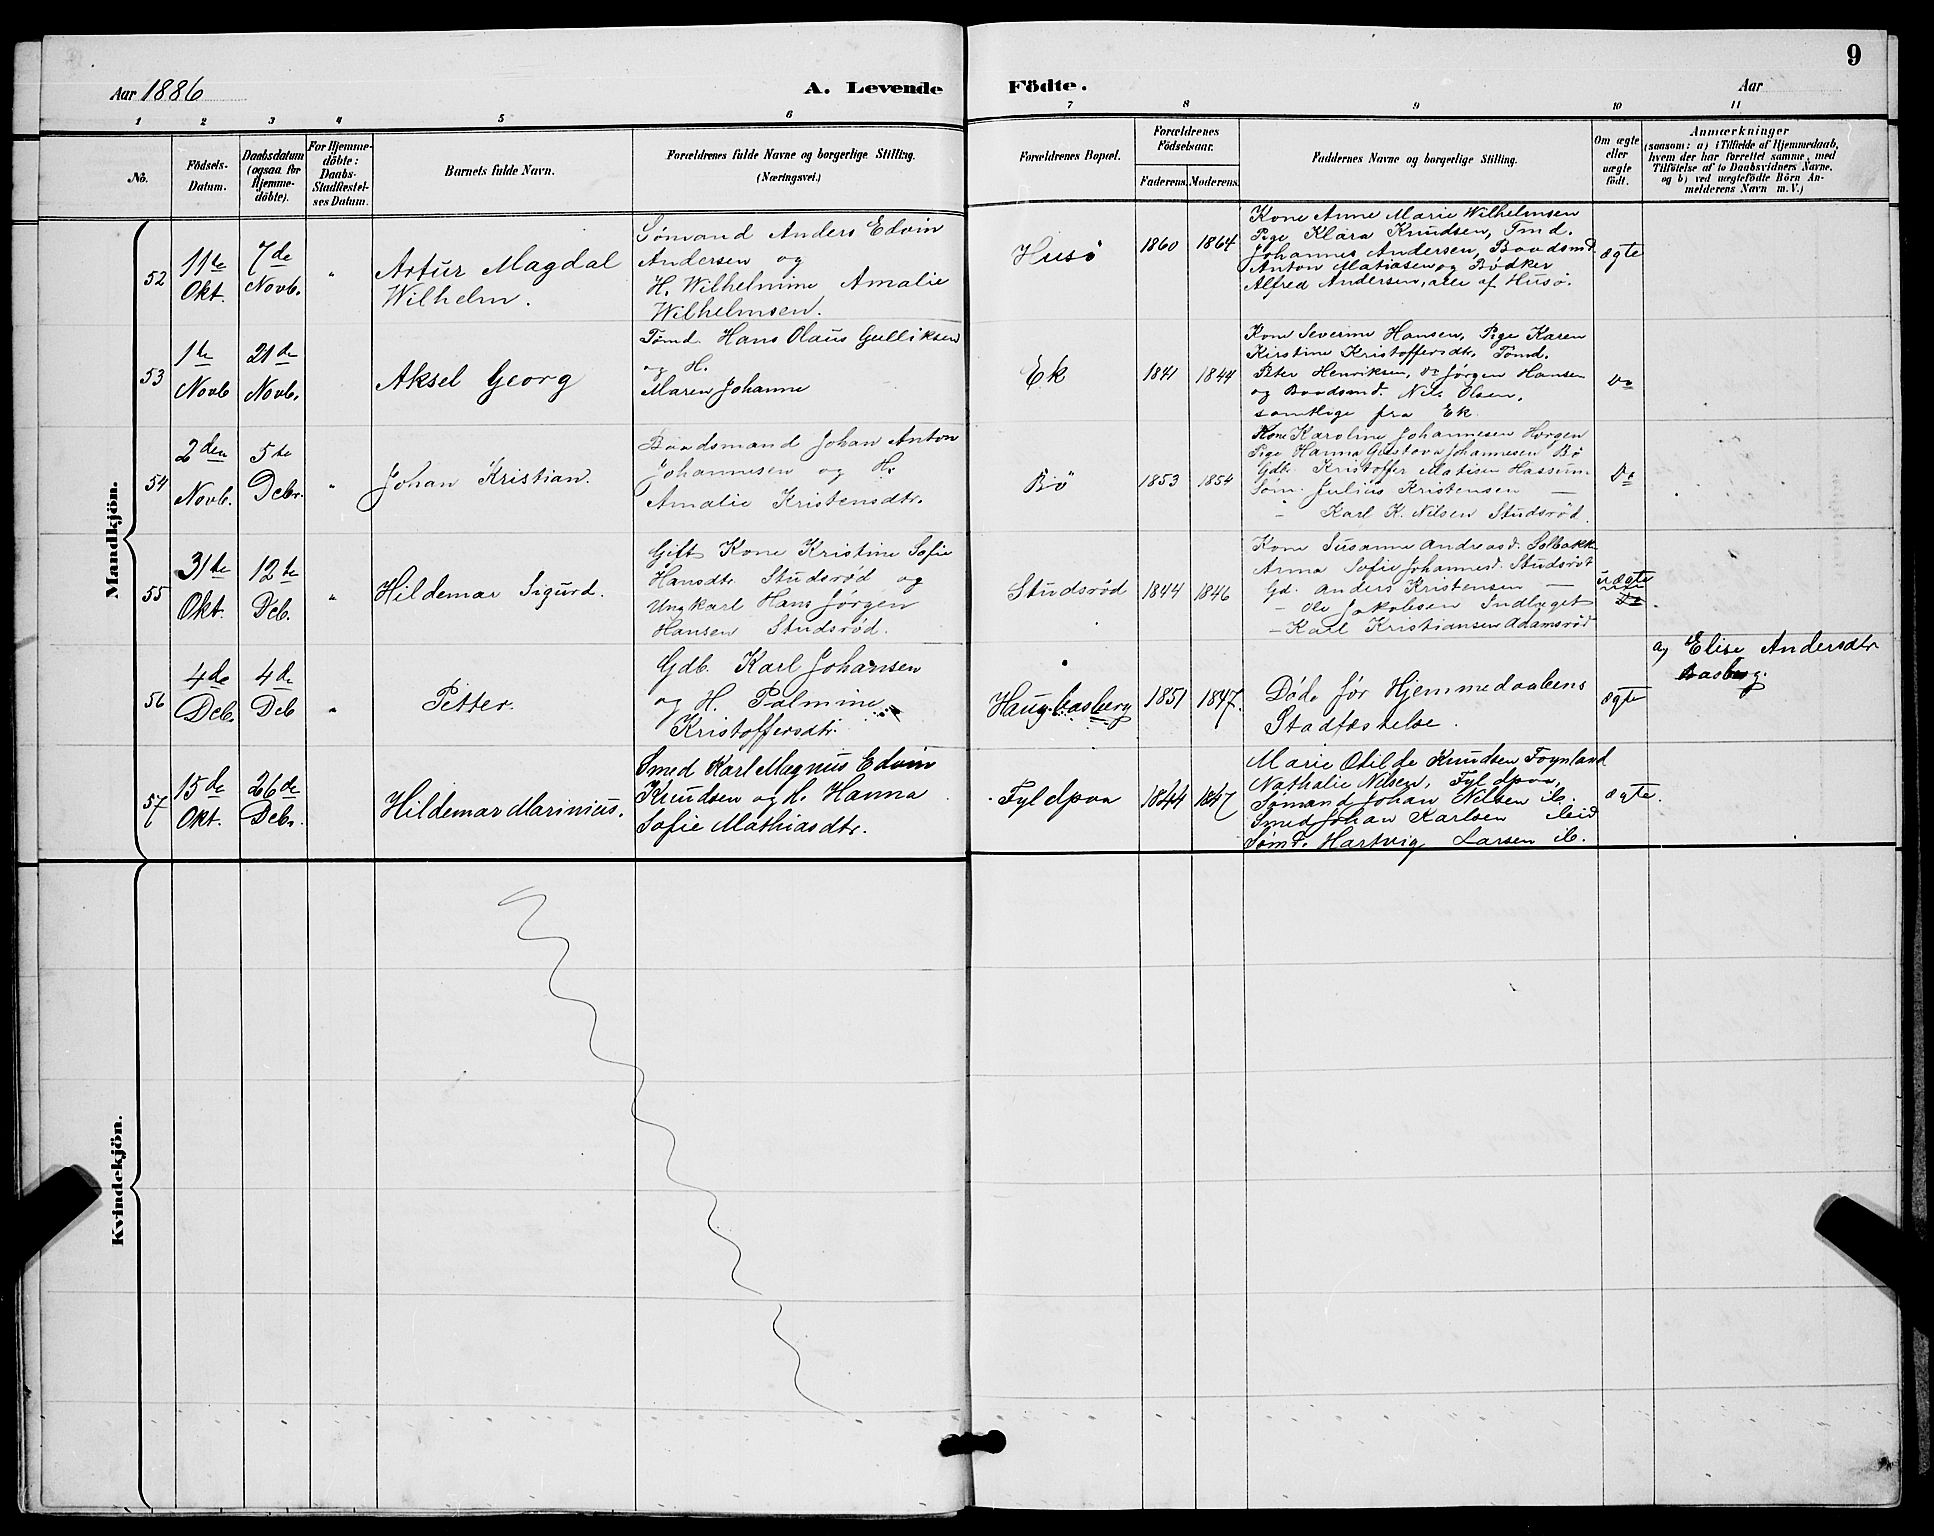 9
Aar 1886
A. Levende Födte.
Aar
1 2 3 4 5 6 7 8 9 10 11
No.
Födsels-Datum.
Daabsdatum (ogsaa for Hjemme-döbte).
For Hjemme-döbte: Daabs-Stadfæstel-ses Datum.
Barnets fulde Navn.
Forældrenes fulde Navne og borgerlige Stilling. (Næringsvei.)
Forældrenes Bopæl.
Forældrenes Födselsaar.
Faderens. Moderens.
Faddernes Navne og borgerlige Stilling.
Om ægte eller uægte födt.
Anmærkninger
(saasom: a) i Tilfælde af Hjemmedaab,
hvem der har forrettet samme, med
Tilföielse af to Daabsvidners Navne,
og b) ved uægtefödte Börn An-
melderens Navn m. V.)
Mandkjön.
52
11te Okt.
7de Novb.
"
Artur Magdal
Wilhelm.
Sömand Anders Edvin
Andersen og
H. Wilhelmine Amalie
Wilhelmsen.
Husö
1860 1864
Kone Anne Marie Wilhelmsen
Pige Klara Knudsen, Tmd.
Johannes Andersen, Baadsmd
Anton Matiasen og Bödker
Alfred Andersen, alle af Husö.
ægte
53
1te Novb
21de Novb.
Aksel Georg
Tömd. Hans Olaus Gulliksen
og H.
Maren Johanne
Ek
1841 1844
Kone Severine Hansen, Pige Karen
Kirstine Kristoffersdtr, Tömd.
Peter Henriksen, Do Jörgen Hansen
og Baadsmd. Nils Olsen,
samtlige fra Ek.
Do
54
2den Novb.
5te Debr.
"
Johan Kristian.
Baadsmand Johan Anton
Johannesen og H.
Amalie Kristensdtr.
Bö
1853 1854
Kone Karoline Johannesen Horgen
Pige Hanna Gustava Johannesen Bö
Gdb. Kristoffer Matisen Hassum
Söm. Julius Kristensen —
- Karl K. Nilsen Studsröd.
Do
55
31te Okt.
12te Deb.
"
Hildemar Sigurd.
Gift Kone Kristine Sofie
Hansdtr. Studsröd og
Ungkarl Hans Jörgen
Hansen Studsröd.
Studsröd
1844 1846
Kone Susanne Andreasd. Solbakk
Anna Sofie Johannesd. Studsröd
Gd. Anders Kristensen —
- Ole Jakobsen Indlæget
- Karl Kristiansen Adamsröd
uægte
Do.
56
4de Deb.
4de Deb
"
Petter.
Gdb. Karl Johansen
og H. Palmine
Kristoffersdtr.
Haugbasberg
1851 1847.
Döde för Hjemmedaabens
Stadfæstelse.
ægte
a) Elise Andersdtr
Basberg.
57
15de Okt.
26de Debr.
Hildemar Marinius.
Smed Karl Magnus Edvin
Knudsen og H. Hanna
Sofie Mathiasdtr.
Fyldpaa
1844 1847
Marie Otilde Knudsen Foynland
Nathalie Nilsen, Fyldpaa,
Sömand Johan Nilsen ib.
Smed Johan Karlsen ibid
Sömd. Hartvig Larsen ib.
ægte.
Kvindekjön.